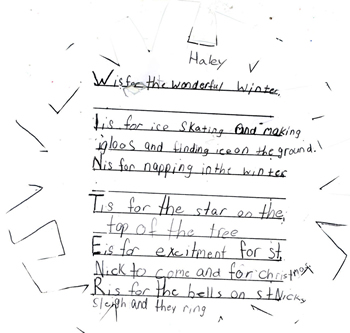 Haley
Wis for the wonderful winter.
I is for ice skating and making
igloos and finding ice on the ground.
Nis for napping in the winter
T is for the star on the
top of the tree
Eis for excitment for st.
Nick to come and for christmas
Ris for the bells on st Nicks
sleigh and they ring